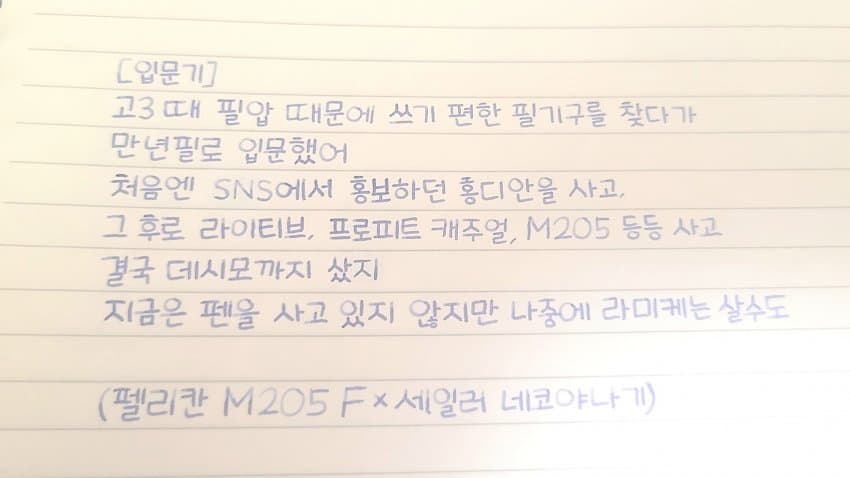 [입문기]
고3 때 필압 때문에 쓰기 편한 필기구를 찾다가
만년필로 입문했어
처음엔 SNS에서 홍보하던 홍디안을 사고,
그 후로 라이티브, 프로피트 캐주얼, M205 등등 사고
결국 데시모까지 샀지
지금은 펜을 사고 있지 않지만 나중에 라미케는 살수도
(펠리칸 M205 F×세일러 네코야나기)